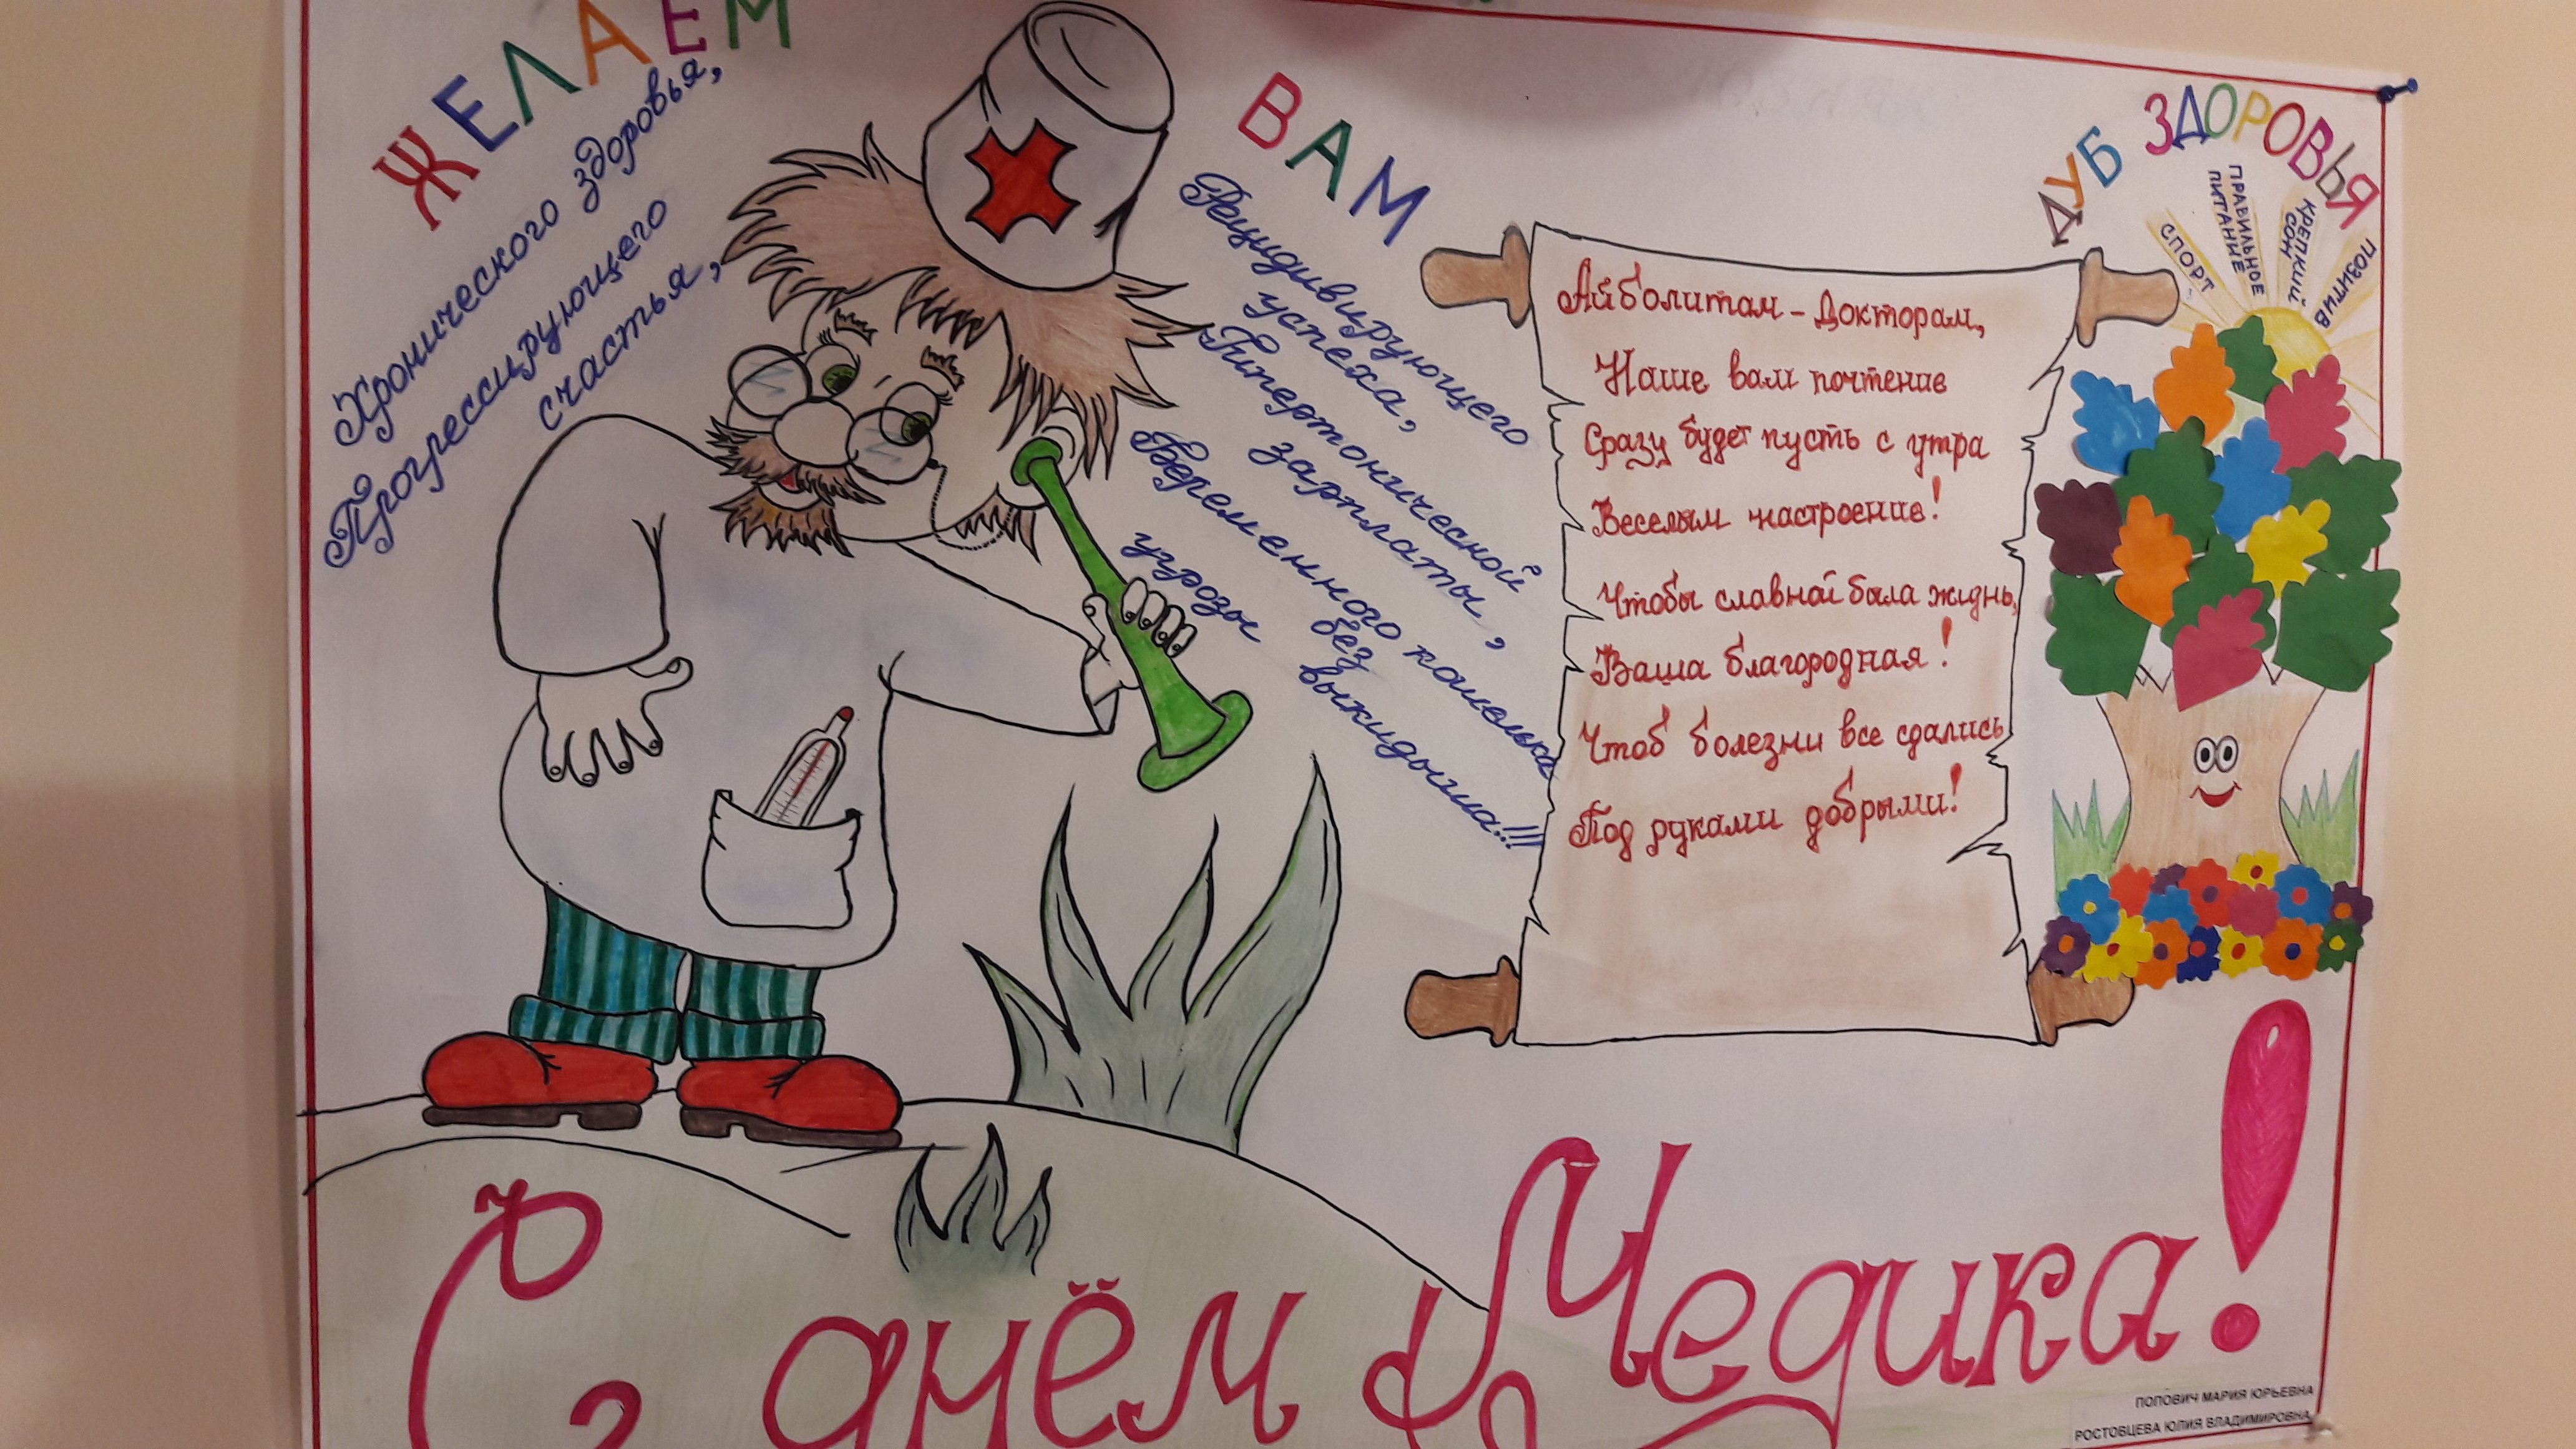 ЖЕЛАЕМ
ВАМ
Хронического здоровья,
Прогрессирующего
счастья,
Рецидивирующего
успеха,
Гипертонической
зарплаты,
Беременного кошелька
без
угрозы выкидыша!!!
Айболитам - Докторам,
Наше вам почтение
Сразу будет пусть с утра
Веселым настроение!
Чтобы славной была жизнь,
Ваша благородная!
Чтоб болезни все сдались
Под руками добрыми!
ДУБ ЗДОРОВЬЯ
СПОРТ
ПРАВИЛЬНОЕ
ПИТАНИЕ
КРЕПКИЙ
СОН
ПОЗИТИВ
С днём Медика!
ПОПОВИЧ МАРИЯ ЮРЬЕВНА
РОСТОВЦЕВА ЮЛИЯ ВЛАДИМИРОВНА